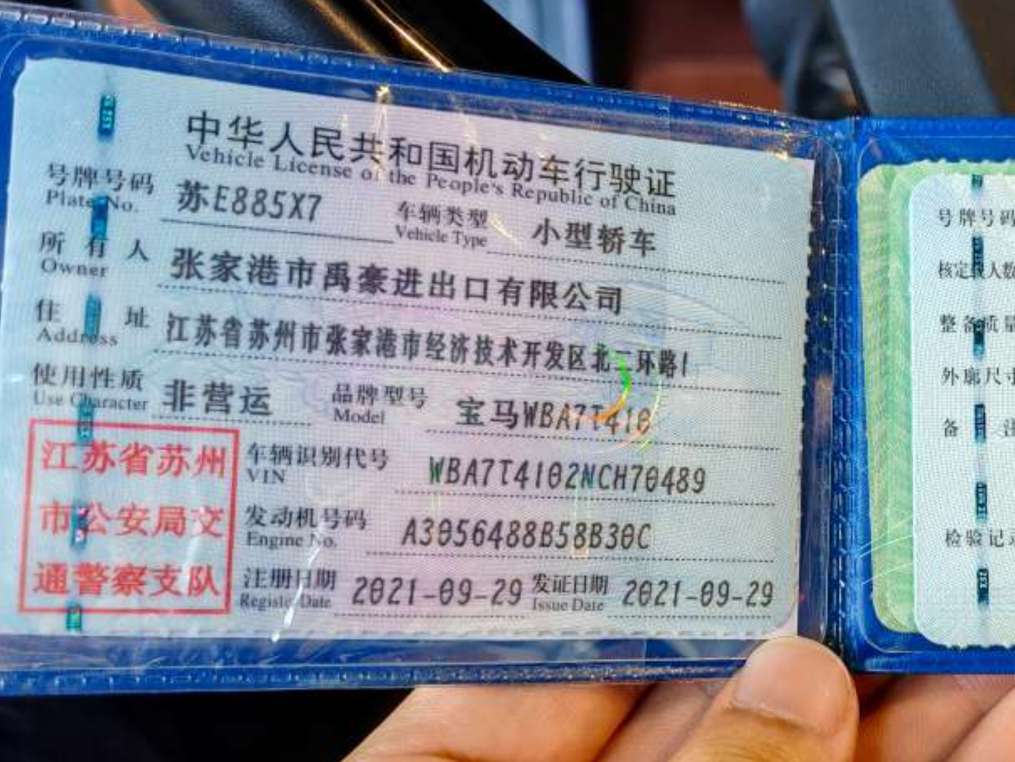 中华人民共和国机动车行驶证
Vehicle License of the People's Republic of China
号牌号码 苏E885X7 车辆类型 小型轿车
Plate No. Vehicle Type
所有人 张家港市禹豪进出口有限公司
Owner
住址 江苏省苏州市张家港市经济技术开发区北二环路1
Address
使用性质 非营运 品牌型号 宝马WBA7T410
Use Character Model
江苏省苏州
市公安局交
通警察支队
车辆识别代号 WBA7T4102NCH70489
VIN
发动机号码 A3056488B58B30C
Engine No.
注册日期 2021-09-29 发证日期 2021-09-29
Registe Date Issue Date
号牌号码
核定载人数
整备质量
外廓尺寸
备 注
检验记录